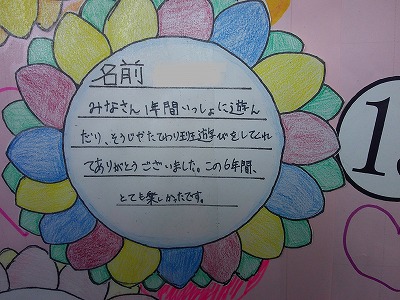 名前
みなさん1年間いっしょに遊ん
だり、そうじやたてわり班遊びをしてくれ
てありがとうございました。この6年間、
とても楽しかったです。